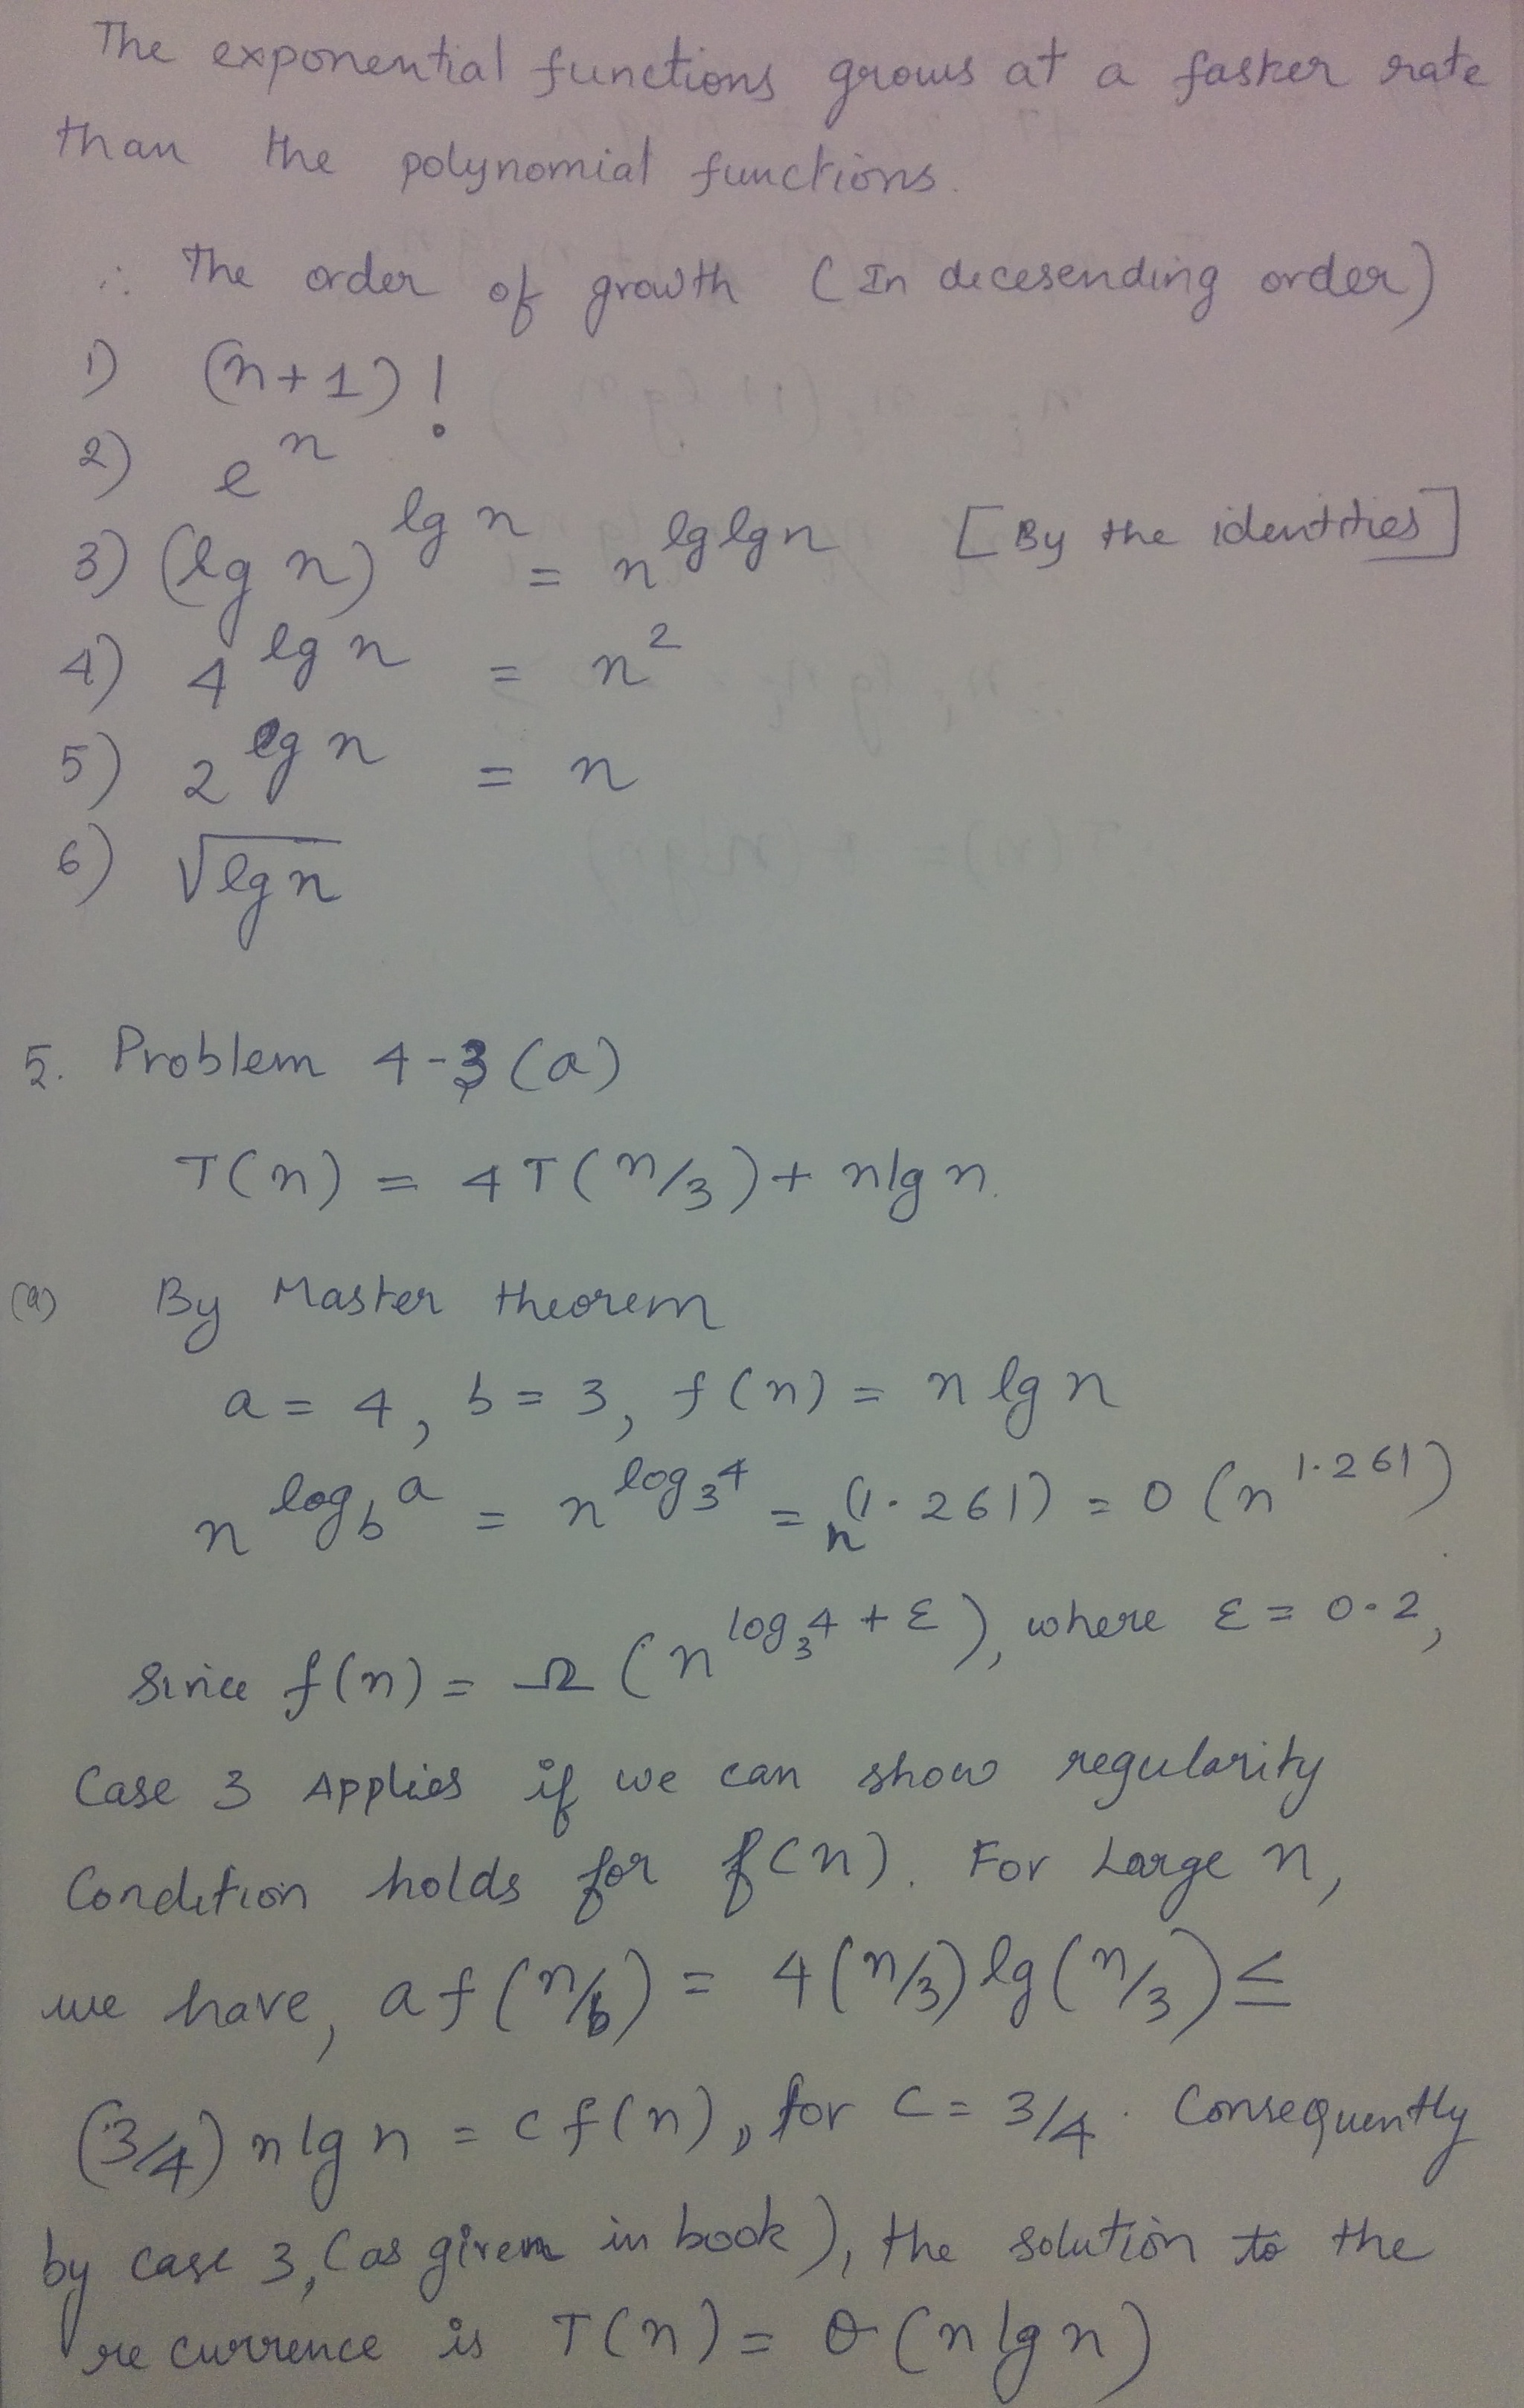 The exponential functions grows at a faster rate
than the polynomial functions.
∴ The order of growth (In decesending order)
1) (n+1)!
2) e^n
3) (lg n)^{lg n} = n^{lg lg n} [By the identities]
4) 4^{lg n} = n^2
5) 2^{lg n} = n
6) √(lg n)
5. Problem 4-3(a)
T(n) = 4T(n/3) + n lg n.
(a) By Master theorem
a = 4, b = 3, f(n) = n lg n
n^{log_b a} = n^{log_3 4} = n^(1.261) = O(n^{1.261})
Since f(n) = Ω(n^{log_3 4 + ε}), where ε = 0.2,
Case 3 Applies if we can show regularity
Condition holds for f(n). For Large n,
we have, a f(n/b) = 4(n/3) lg(n/3) ≤
(3/4) n lg n = c f(n), for C = 3/4. Consequently
by case 3, (as given in book), the solution to the
recurrence is T(n) = Θ(n lg n)